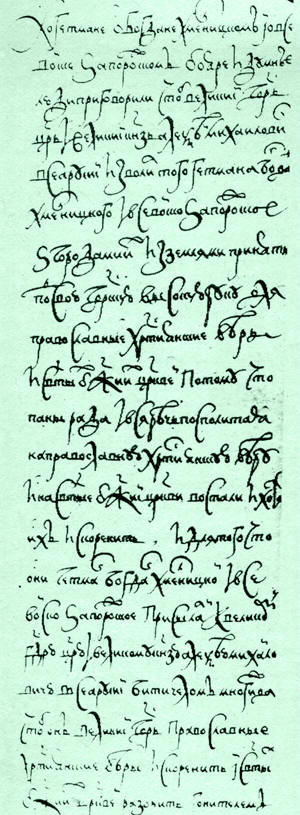 А о гетмане о Богдане Хмелницком и о всем
Войске Запорожском бояре и думные
люди приговорили чтоб великий государь
царь и великий князь Алексей Михайлович
всеа Русии изволил того гетмана Богдана
Хмелницкого и все Войско Запорожское
з городами их и з землями принять
под свою государскую высокую руку для
православные християнские веры
и святых божиих церквей потому что
паны рада и вся Речь Посполитая
на православную християнскую веру
и на святые божии церкви востали и хотят
их искоренить и для того что
они гетман Богдан Хмелницкой и все
Войско Запорожское присылали к великому
государю царю и великому князю Алексею Михайло
вичю всеа Русии бити челом многижда
чтоб он великий государь православные
християнские веры искоренить и святых
божиих церквей разорить гонителем